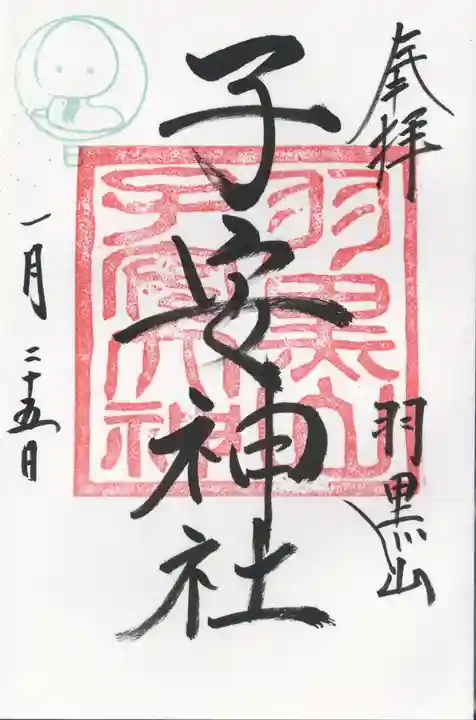 奉拝
羽黒山
子安神社
一月二十五日
羽黒山
子安大神